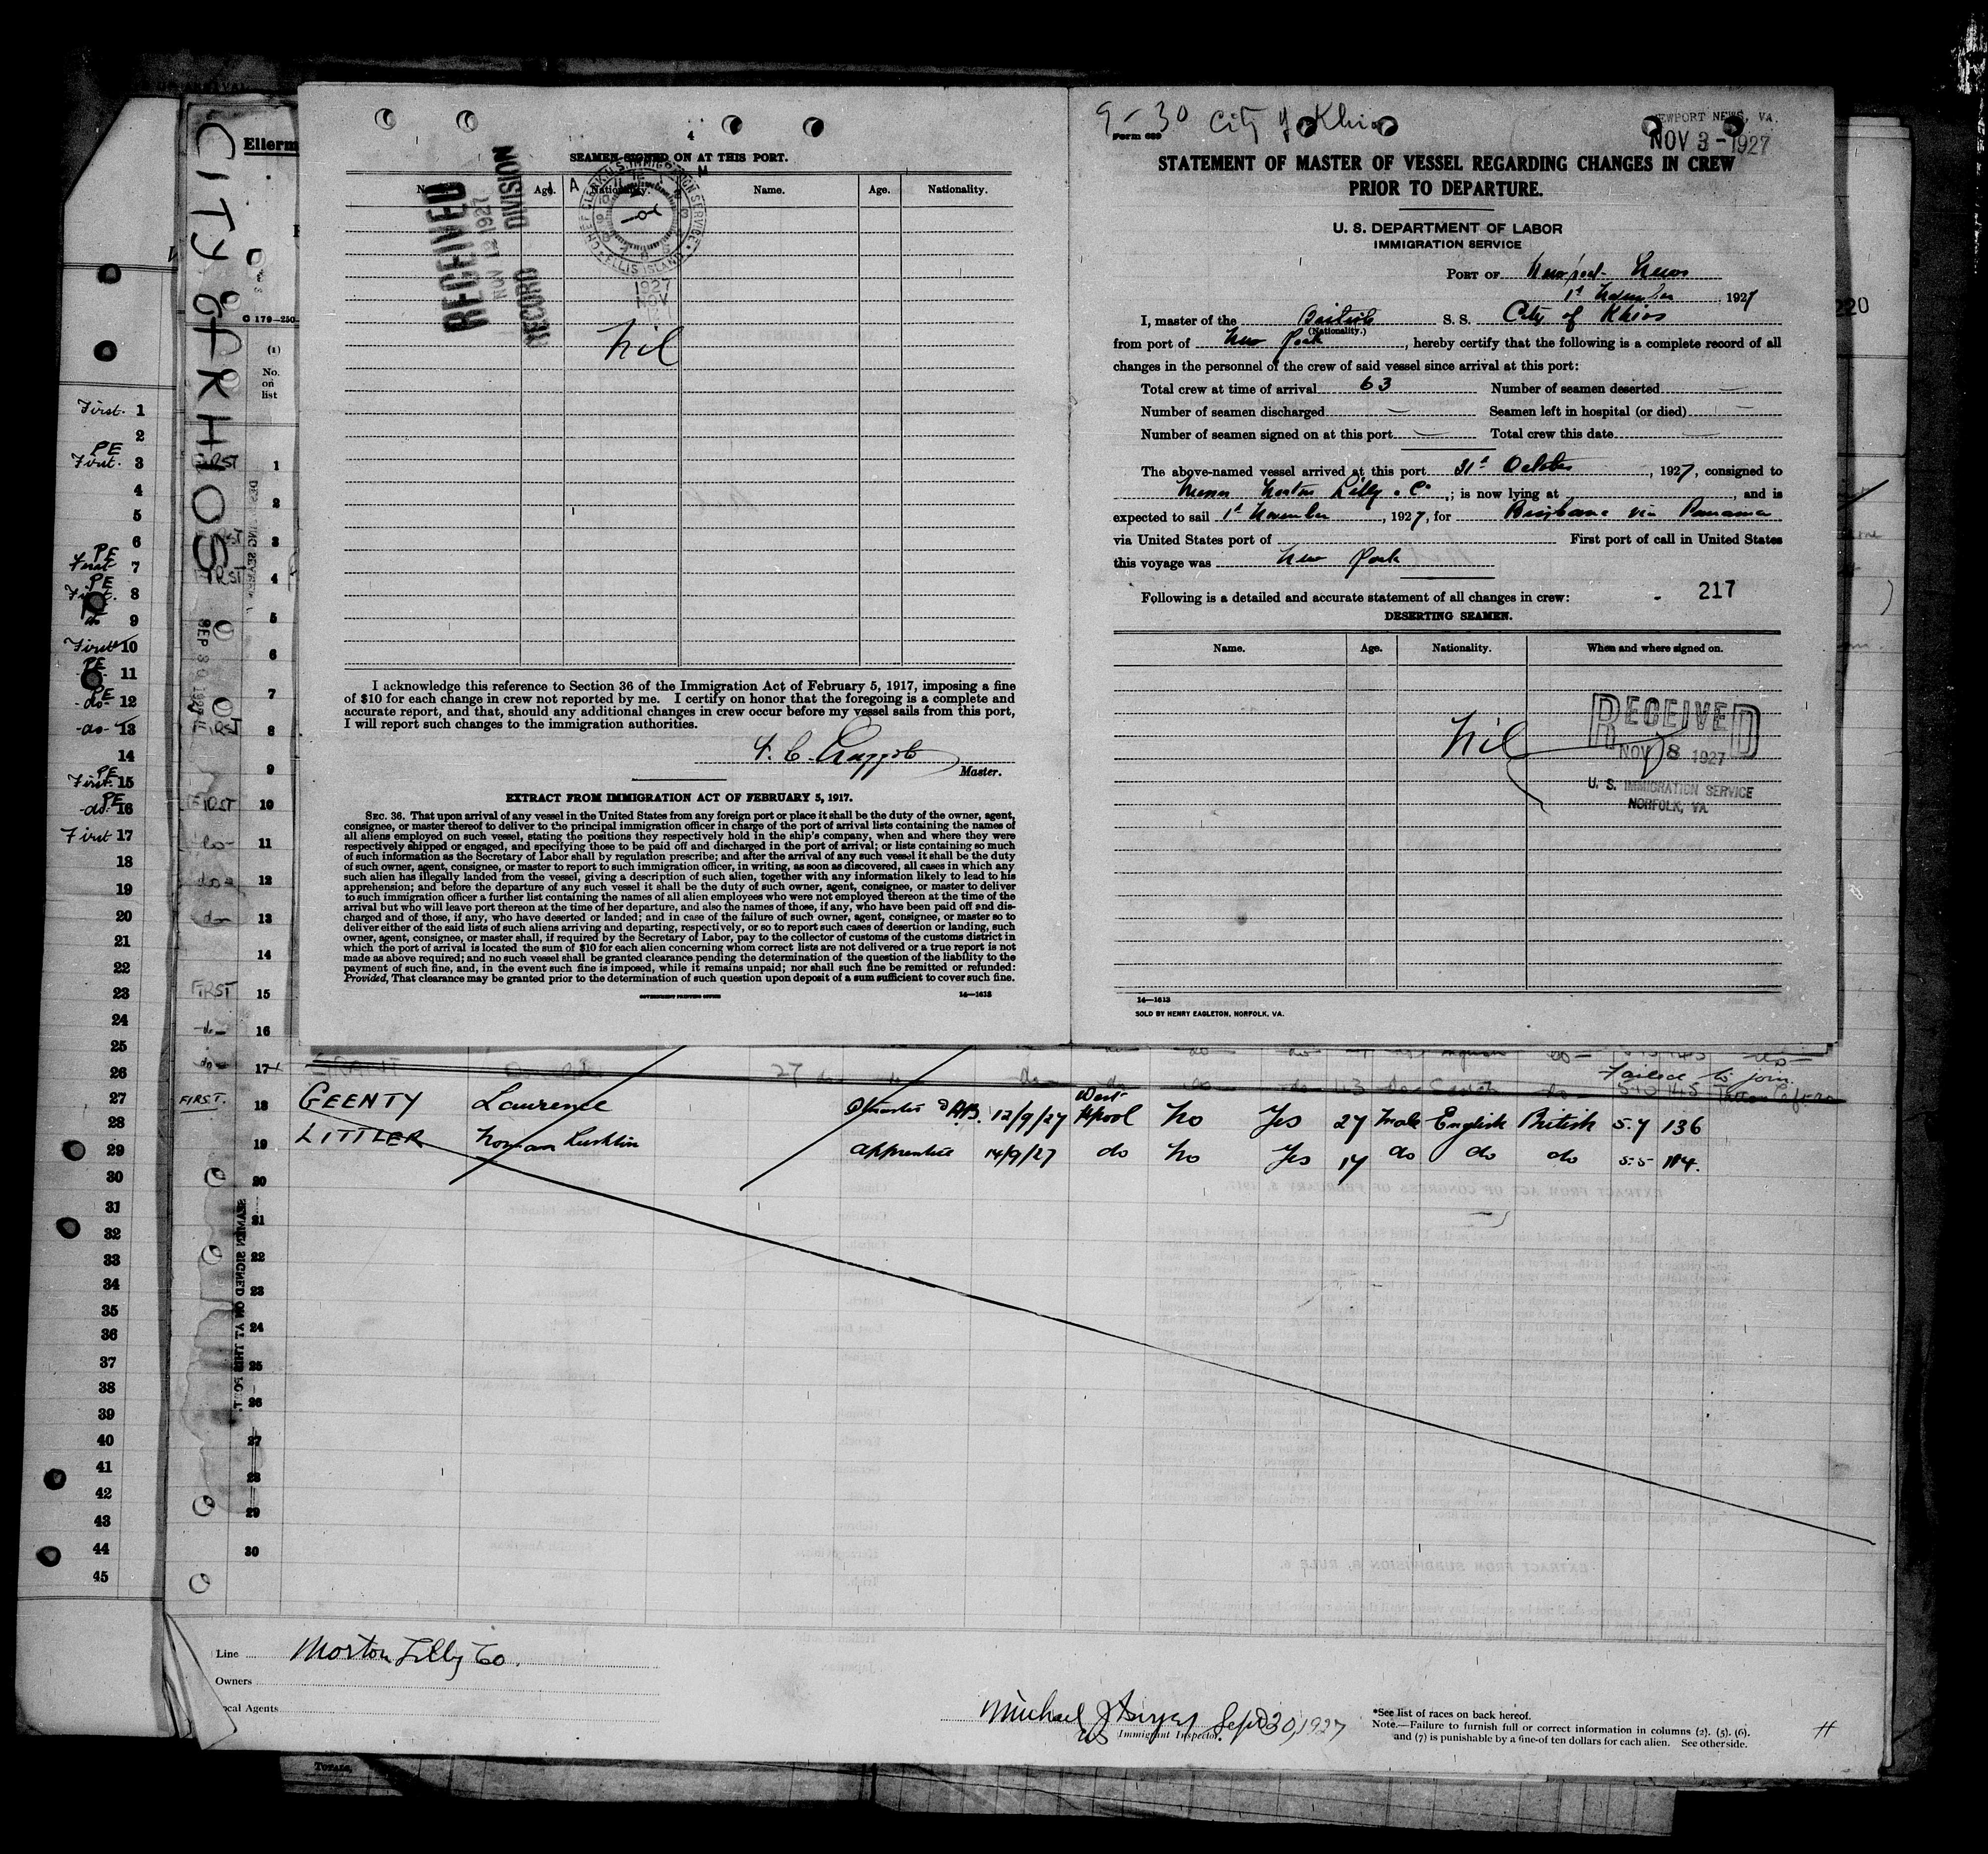 4
SEAMEN SIGNED ON AT THIS PORT.
Name. Age. Nationality. Name. Age. Nationality.
RECEIVED
NOV 12 1927
RECORD DIVISION
CHIEF CLERK U.S. IMMIGRATION SERVICE
ELLIS ISLAND
1927
NOV
Nil
I acknowledge this reference to Section 36 of the Immigration Act of February 5, 1917, imposing a fine
of $10 for each change in crew not reported by me. I certify on honor that the foregoing is a complete and
accurate report, and that, should any additional changes in crew occur before my vessel sails from this port,
I will report such changes to the immigration authorities.
Master.
EXTRACT FROM IMMIGRATION ACT OF FEBRUARY 5, 1917.
SEC. 36. That upon arrival of any vessel in the United States from any foreign port or place it shall be the duty of the owner, agent,
consignee, or master thereof to deliver to the principal immigration officer in charge of the port of arrival lists containing the names of
all aliens employed on such vessel, stating the positions they respectively hold in the ship's company, when and where they were
respectively shipped or engaged, and specifying those to be paid off and discharged in the port of arrival; or lists containing so much
of such information as the Secretary of Labor shall by regulation prescribe; and after the arrival of any such vessel it shall be the duty
of such owner, agent, consignee, or master to report to such immigration officer, in writing, as soon as discovered, all cases in which any
such alien has illegally landed from the vessel, giving a description of such alien, together with any information likely to lead to his
apprehension; and before the departure of any such vessel it shall be the duty of such owner, agent, consignee, or master to deliver
to such immigration officer a further list containing the names of all alien employees who were not employed thereon at the time of the
arrival but who will leave port thereon at the time of her departure, and also the names of those, if any, who have been paid off and dis-
charged and of those, if any, who have deserted or landed; and in case of the failure of such owner, agent, consignee, or master so to
deliver either of the said lists of such aliens arriving and departing, respectively, or so to report such cases of desertion or landing, such
owner, agent, consignee, or master shall, if required by the Secretary of Labor, pay to the collector of customs of the customs district in
which the port of arrival is located the sum of $10 for each alien concerning whom correct lists are not delivered or a true report is not
made as above required; and no such vessel shall be granted clearance pending the determination of the question of the liability to the
payment of such fine, and, in the event such fine is imposed, while it remains unpaid; nor shall such fine be remitted or refunded:
Provided, That clearance may be granted prior to the determination of such question upon deposit of a sum sufficient to cover such fine.
GOVERNMENT PRINTING OFFICE 14—1613
9-30 City of Khios
Form 689
NEWPORT NEWS, VA.
NOV 3 - 1927
STATEMENT OF MASTER OF VESSEL REGARDING CHANGES IN CREW
PRIOR TO DEPARTURE.
U. S. DEPARTMENT OF LABOR
IMMIGRATION SERVICE
PORT OF Newport News
1st November, 1927
I, master of the British S. S. City of Khios
(Nationality.)
from port of New York, hereby certify that the following is a complete record of all
changes in the personnel of the crew of said vessel since arrival at this port:
Total crew at time of arrival 63 Number of seamen deserted —
Number of seamen discharged — Seamen left in hospital (or died) —
Number of seamen signed on at this port — Total crew this date —
The above-named vessel arrived at this port 31st October, 1927, consigned to
Messrs Norton Lilly & Co.; is now lying at , and is
expected to sail 1st November, 1927, for Brisbane via Panama
via United States port of First port of call in United States
this voyage was New York
Following is a detailed and accurate statement of all changes in crew: - 217
DESERTING SEAMEN.
Name. Age. Nationality. When and where signed on.
Nil
RECEIVED
NOV 8 1927
U. S. IMMIGRATION SERVICE
NORFOLK, VA.
14—1613
SOLD BY HENRY EAGLETON, NORFOLK, VA.
CITY OF KHIOS
Ellerm
(1)
No.
on
list
SEP 30 1927
220
Failed to join
FIRST. 18 GEENTY Laurence 12/9/27 West Hpool No Yes 27 Male English British 5.7 136
19 LITTLER Norman apprentice 14/9/27 do No Yes 17 do do do 5-5 114.
20
21
22
23
24
25
26
27
28
29
30
SEAMEN SIGNED ON AT THIS PORT.
Line Norton Lilly Co.
Owners
Local Agents
Michael
Immigrant Inspector. Sept 30, 1927
*See list of races on back hereof.
Note.—Failure to furnish full or correct information in columns (2), (5), (6),
and (7) is punishable by a fine of ten dollars for each alien. See other side.
First. 1
2
PE
First. 3
4
5
6
PE
First 7
PE
8
do 9
First 10
PE
11
PE
-do- 12
-do- 13
14
PE
First. 15
PE
-do- 16
First 17
18
19
20
21
22
23
24
25
26
27
28
29
30
31
32
33
34
35
36
37
38
39
40
41
42
43
44
45